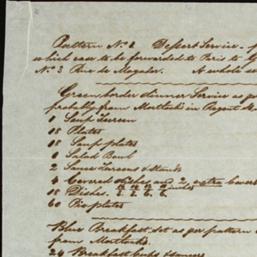 Pattern No. 2 Dessert Service.
which case to be forwarded to Paris to
No. 3 Rue de Mogador. A whole
Green border dinner Service as per
probably from Mortlocks in Regent
1 Soup Tureen
18 Plates
18 Soup plates
1 Salad Bowl
2 Sauce Tureens & Stands
4 Covered dishes and 2 extra Covers
18 Dishes.
60 Pie plates
Blue Breakfast set as per pattern
from Mortlocks.
24 Breakfast Cups & saucers